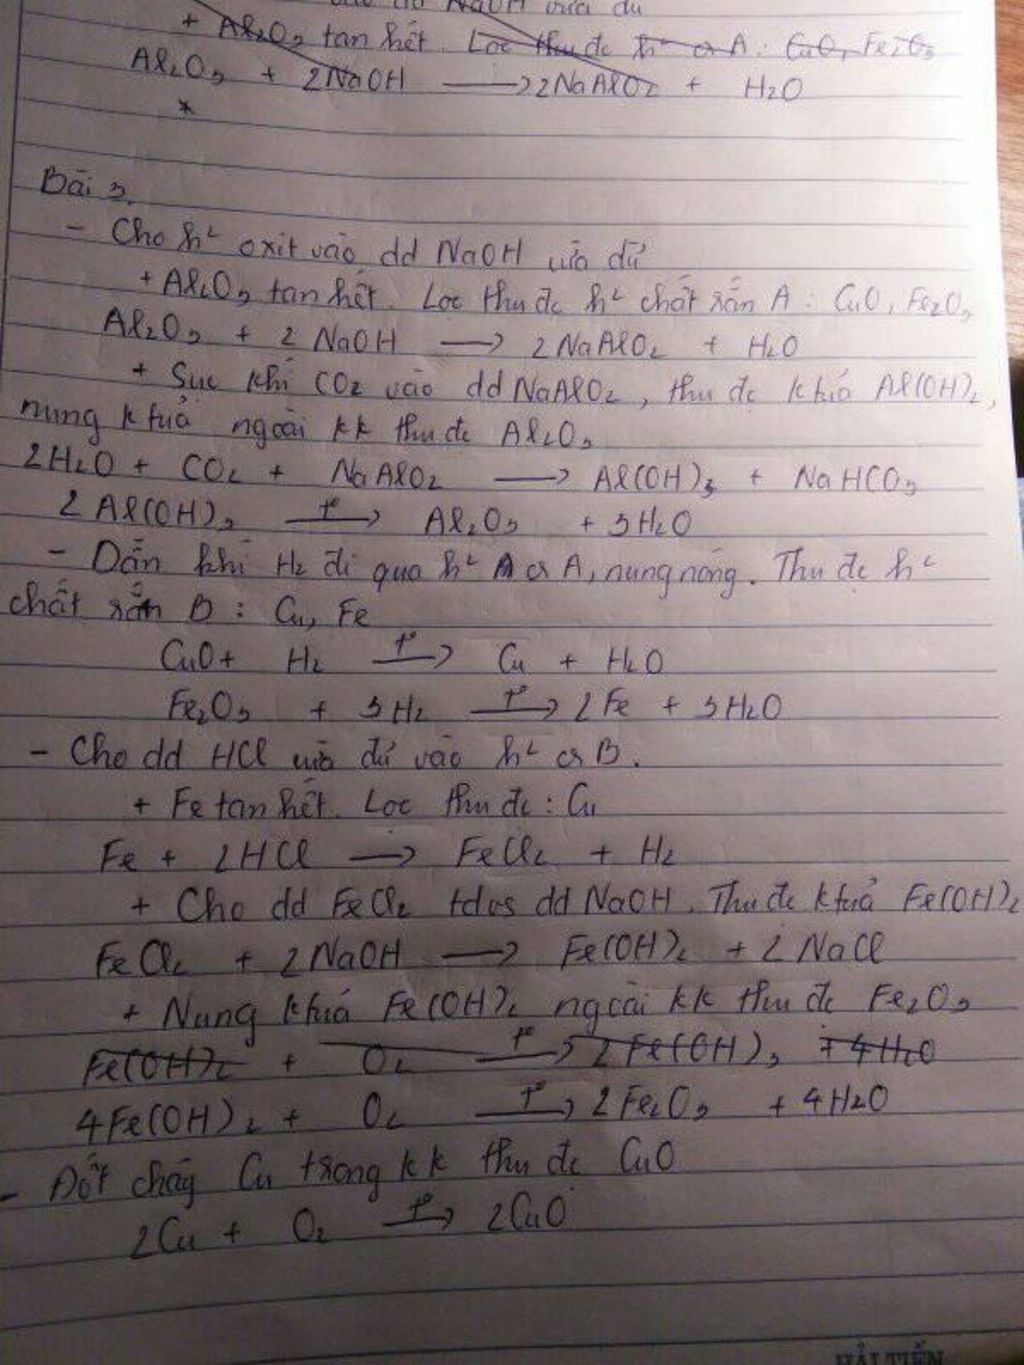 NaOH vừa đủ
+ Al2O3 tan hết. Lọc thu đc h² cr A: CuO, Fe2O3
Al2O3 + 2NaOH ⟶ 2NaAlO2 + H2O
*
Bài 3.
- Cho h² oxit vào dd NaOH vừa đủ
+ Al2O3 tan hết. Lọc thu đc h² chất rắn A: CuO, Fe2O3
Al2O3 + 2 NaOH ⟶ 2 NaAlO2 + H2O
+ Sục khí CO2 vào dd NaAlO2, thu đc k tủa Al(OH)3,
nung k tuả ngoài kk thu đc Al2O3
2H2O + CO2 + NaAlO2 ⟶ Al(OH)3 + NaHCO3
2 Al(OH)3 t°⟶ Al2O3 + 3H2O
- Dẫn khí H2 đi qua h² cr A, nung nóng. Thu đc h²
chất rắn B: Cu, Fe
CuO + H2 t°⟶ Cu + H2O
Fe2O3 + 3H2 t°⟶ 2Fe + 3H2O
- Cho dd HCl vừa đủ vào h² cr B.
+ Fe tan hết. Lọc thu đc: Cu
Fe + 2HCl ⟶ FeCl2 + H2
+ Cho dd FeCl2 td vs dd NaOH. Thu đc k tuả Fe(OH)2
FeCl2 + 2NaOH ⟶ Fe(OH)2 + 2 NaCl
+ Nung k tuả Fe(OH)2 ngoài kk thu đc Fe2O3
Fe(OH)2 + O2 t°⟶ 2Fe(OH)3 + 4H2O
4Fe(OH)2 + O2 t°⟶ 2Fe2O3 + 4H2O
- Đốt cháy Cu trong kk thu đc CuO
2Cu + O2 t°⟶ 2CuO
HẢI TIẾN